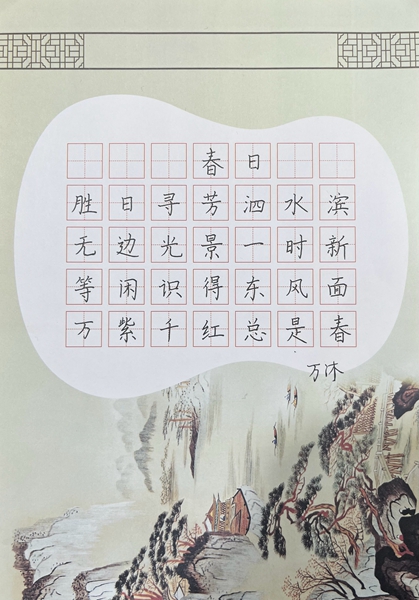 春日
胜日寻芳泗水滨
无边光景一时新
等闲识得东风面
万紫千红总是春
万沐